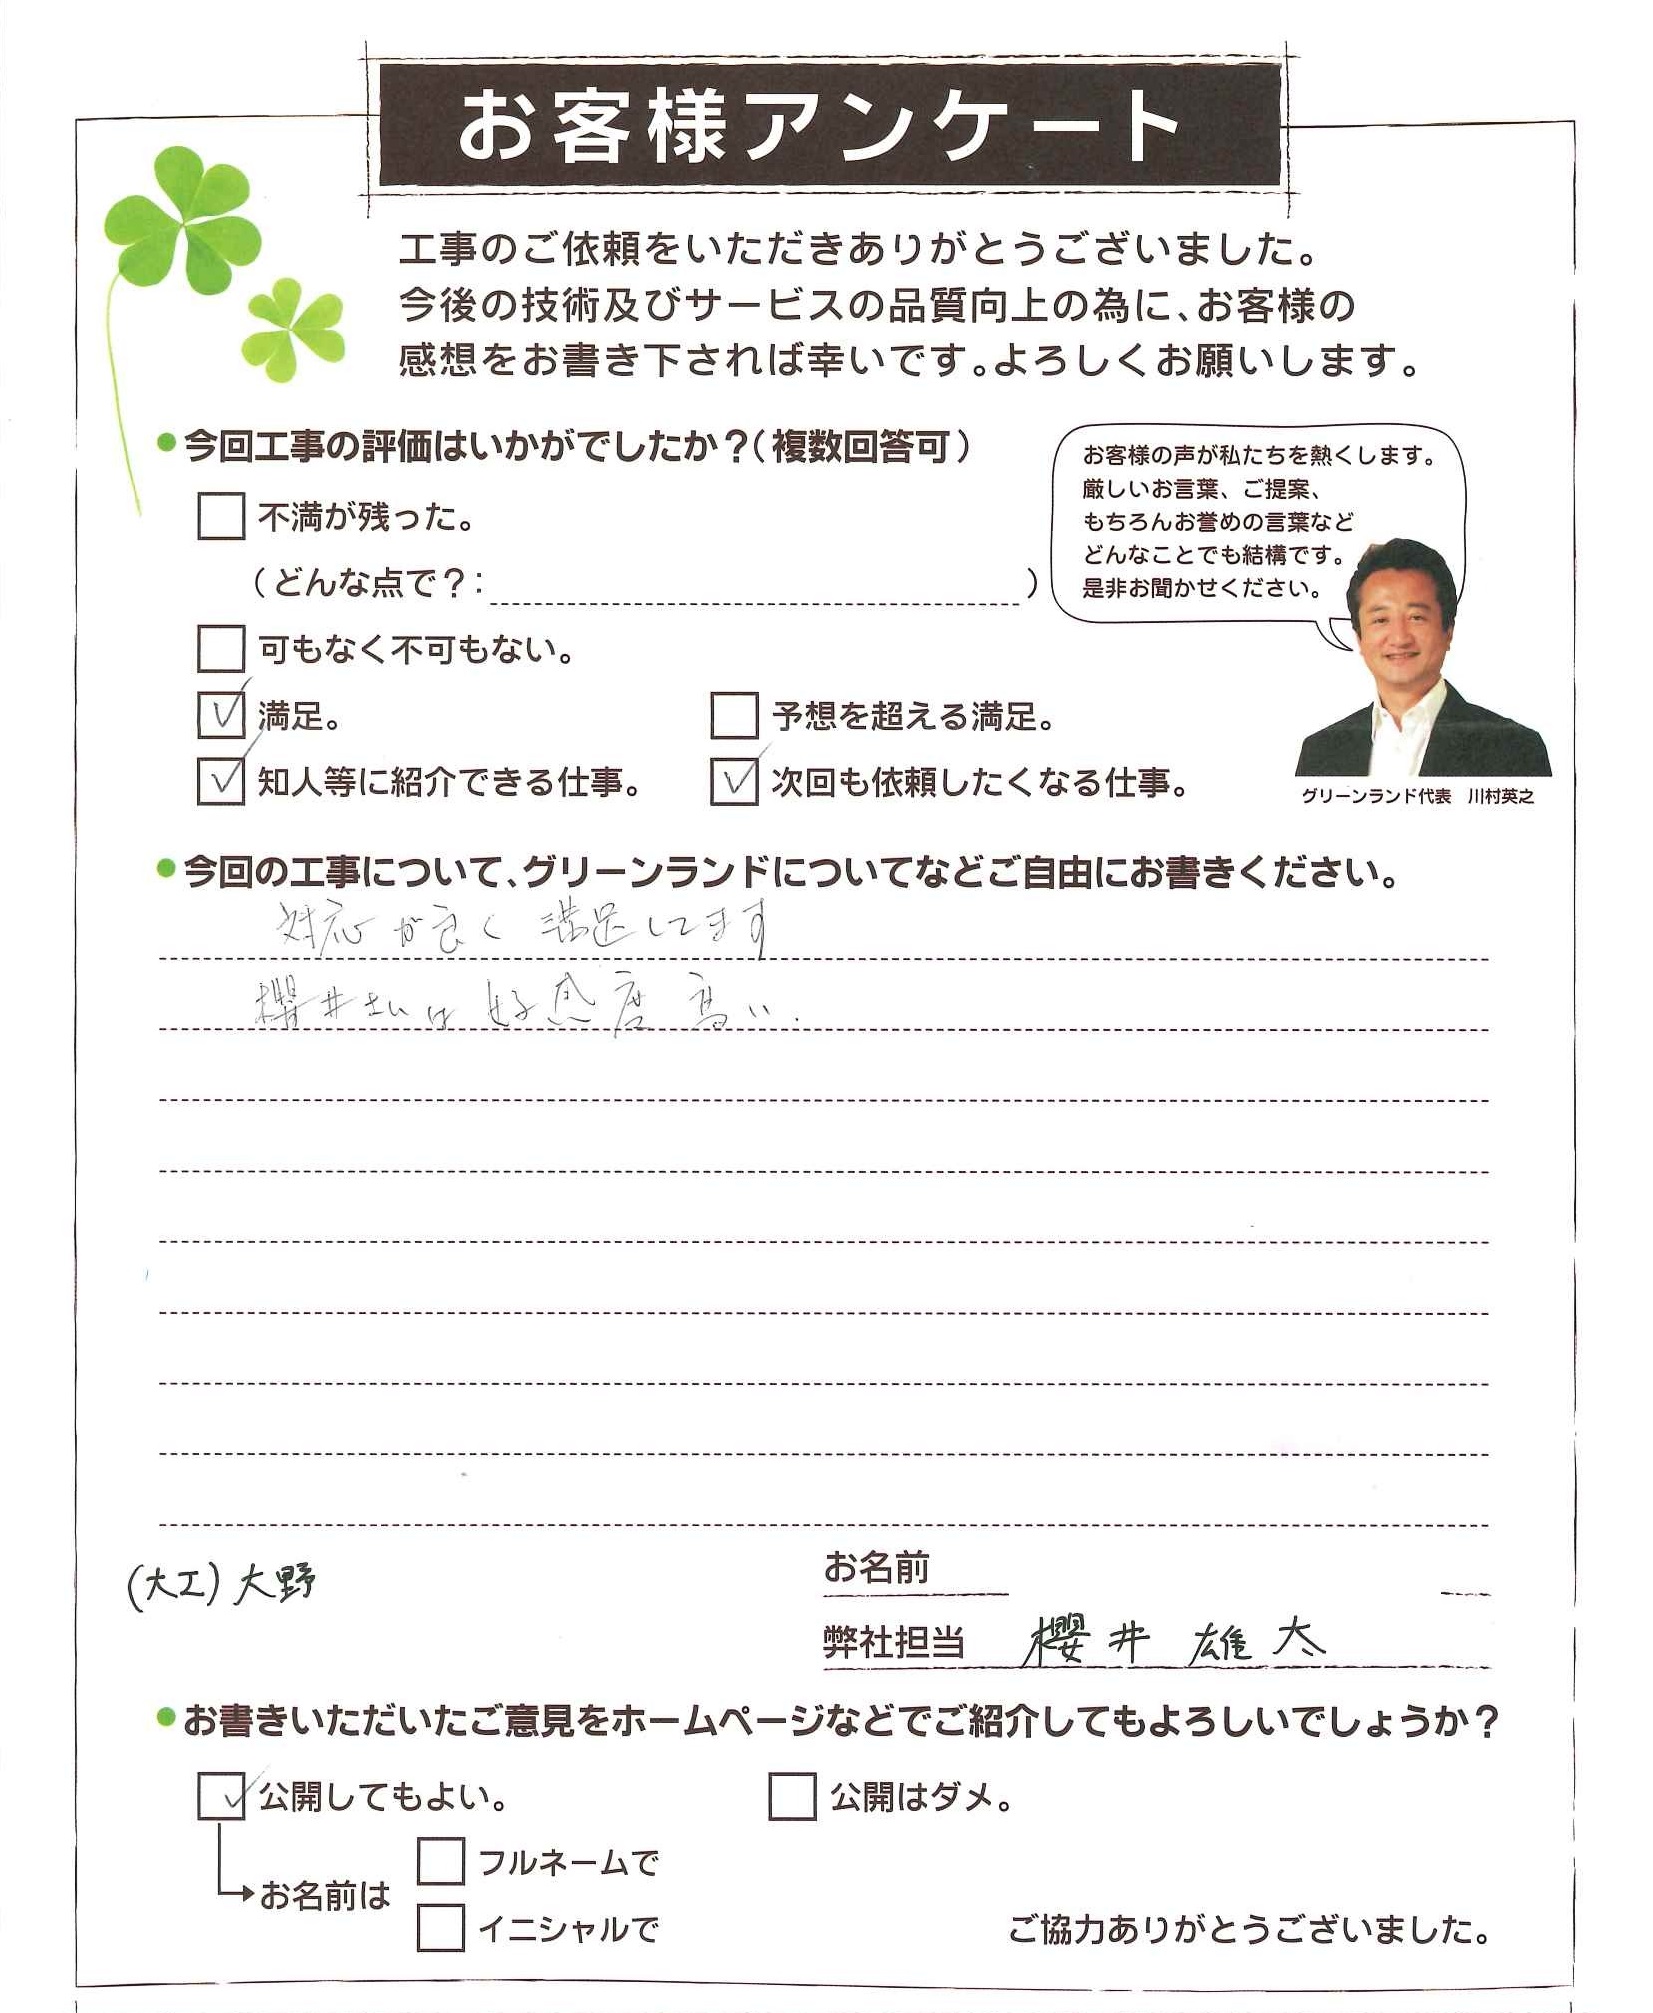 お客様アンケート
工事のご依頼をいただきありがとうございました。
今後の技術及びサービスの品質向上の為に、お客様の
感想をお書き下されば幸いです。よろしくお願いします。
●今回工事の評価はいかがでしたか?(複数回答可)
不満が残った。
(どんな点で?: )
可もなく不可もない。
満足。 予想を超える満足。
知人等に紹介できる仕事。 次回も依頼したくなる仕事。
お客様の声が私たちを熱くします。
厳しいお言葉、ご提案、
もちろんお誉めの言葉など
どんなことでも結構です。
是非お聞かせください。
グリーンランド代表 川村英之
●今回の工事について、グリーンランドについてなどご自由にお書きください。
対応が良く 満足してます
櫻井さんは 好感度 高い.
(大工)大野
お名前
弊社担当 櫻井 雄太
●お書きいただいたご意見をホームページなどでご紹介してもよろしいでしょうか?
公開してもよい。 公開はダメ。
お名前は
フルネームで
イニシャルで
ご協力ありがとうございました。